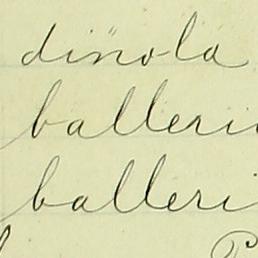 dinola
balleri
balleri